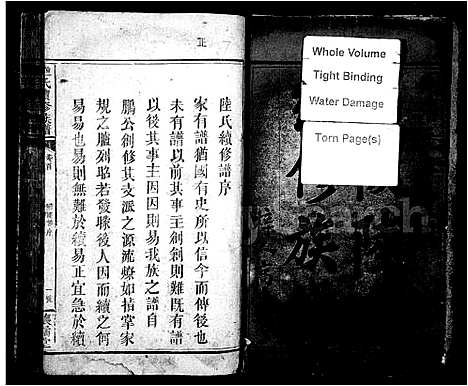 正
陸氏續修譜序
家有譜猶國有史所以信今而傳後也
未有譜以前其事主創創則難既有譜
以後其事主因因則易我族之譜自
鵬公創修其支派之源流燎如指掌家
規之臚列臵若發矇後人因而續之何
易易也易則無難於續易正宜急於續
氏續修族譜
卷首
Whole Volume
Tight Binding
Water Damage
Torn Page(s)
修
族